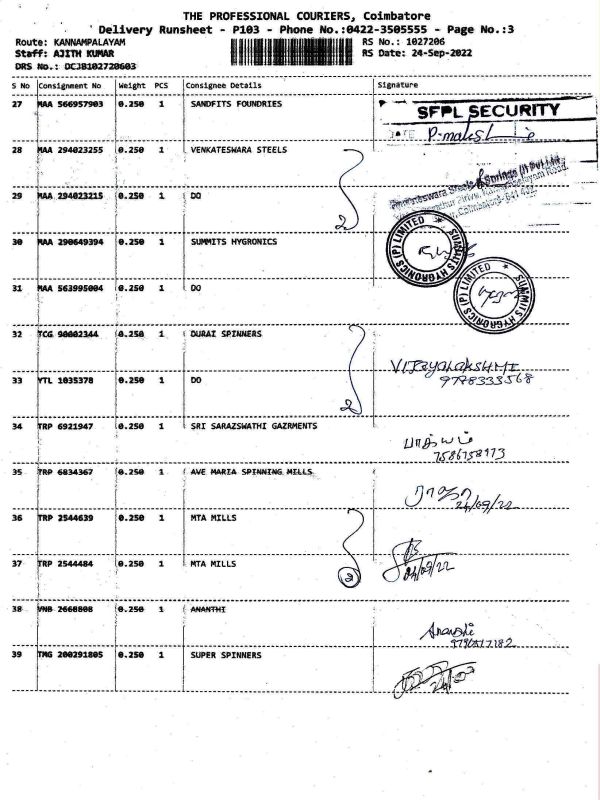 THE PROFESSIONAL COURIERS, Coimbatore
Delivery Runsheet - P103 - Phone No.:0422-3505555 - Page No.:3
Route: KANNAMPALAYAM RS No.: 1027206
Staff: AJITH KUMAR RS Date: 24-Sep-2022
DRS No.: DCJB102720603
S No Consignment No Weight PCS Consignee Details Signature
27 MAA 566957903 0.250 1 SANDFITS FOUNDRIES
SFPL SECURITY
28 MAA 294023255 0.250 1 VENKATESWARA STEELS
29 MAA 294023215 0.250 1 DO
2
30 MAA 290649394 0.250 1 SUMMITS HYGRONICS
SUMMITS HYGRONICS (P) LIMITED
31 MAA 563995004 0.250 1 DO
SUMMITS HYGRONICS (P) LIMITED
32 TCG 90002344 0.250 1 DURAI SPINNERS
VIJAYALAKSHMI
33 YTL 1035378 0.250 1 DO
9778333568
2
34 TRP 6921947 0.250 1 SRI SARAZSWATHI GAZRMENTS
7586758973
35 TRP 6834367 0.250 1 AVE MARIA SPINNING MILLS
ராஜா
24/09/22
36 TRP 2544639 0.250 1 MTA MILLS
37 TRP 2544484 0.250 1 MTA MILLS
2
24/09/22
38 VNB 2668808 0.250 1 ANANTHI
39 TMG 200291805 0.250 1 SUPER SPINNERS